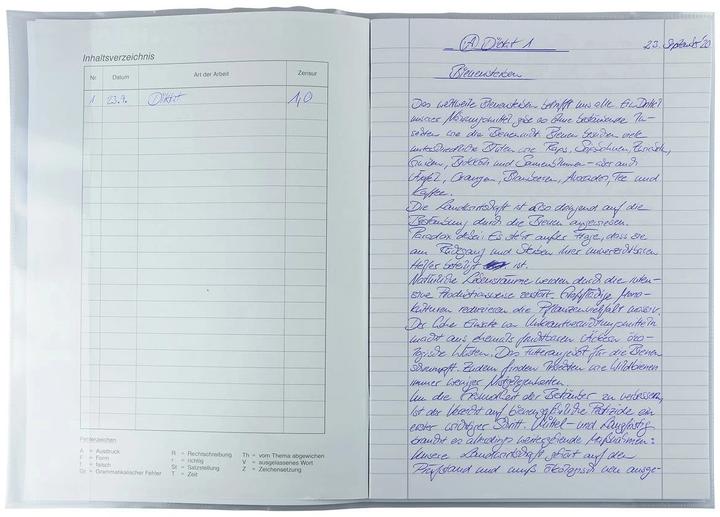 Inhaltsverzeichnis
Nr. Datum Art der Arbeit Zensur
1 23.9. Diktat 1,0
Fehlerzeichen
A = Ausdruck R = Rechtschreibung Th = vom Thema abgewichen
F = Form r = richtig V = ausgelassenes Wort
f = falsch St = Satzstellung Z = Zeichensetzung
Gr = Grammatikalischer Fehler T = Zeit
A Diktat 1 23. September 20
Bienensterben
Das weltweite Bienensterben betrifft uns alle. Ein Drittel
unserer Nahrungsmittel gäbe es ohne bestäubende In-
sekten wie die Bienen nicht. Bienen bestäuben viele
unterschiedliche Blüten wie Raps, Sojabohnen,
Gurken, Brokkoli und Sonnenblumen – aber auch
Äpfel, Orangen, Blaubeeren, Avocados, Tee und
Kaffee.
Die Landwirtschaft ist also dringend auf die
Bestäubung durch die Bienen angewiesen.
Paradox dabei: Es steht außer Frage, dass sie
am Rückgang und Sterben ihrer unverzichtbaren
Helfer beteiligt ist.
Natürliche Lebensräume werden durch die inten-
sive Produktionsweise zerstört. Großflächige Mono-
kulturen reduzieren die Pflanzenvielfalt massiv.
Der hohe Einsatz von Unkrautvernichtungsmitteln
macht aus ehemals fruchtbaren Äckern öko-
logische Wüsten. Das Futterangebot für die Bienen
schrumpft. Zudem finden Insekten wie Wildbienen
immer weniger Nistgelegenheiten.
Um die Gesundheit der Bestäuber zu verbessern,
ist der Verzicht auf bienengefährliche Pestizide ein
erster wichtiger Schritt. Mittel- und Langfristig
braucht es allerdings weitergehende Maßnahmen:
Unsere Landwirtschaft gehört auf den
Prüfstand und muß ökologisch neu ausge-